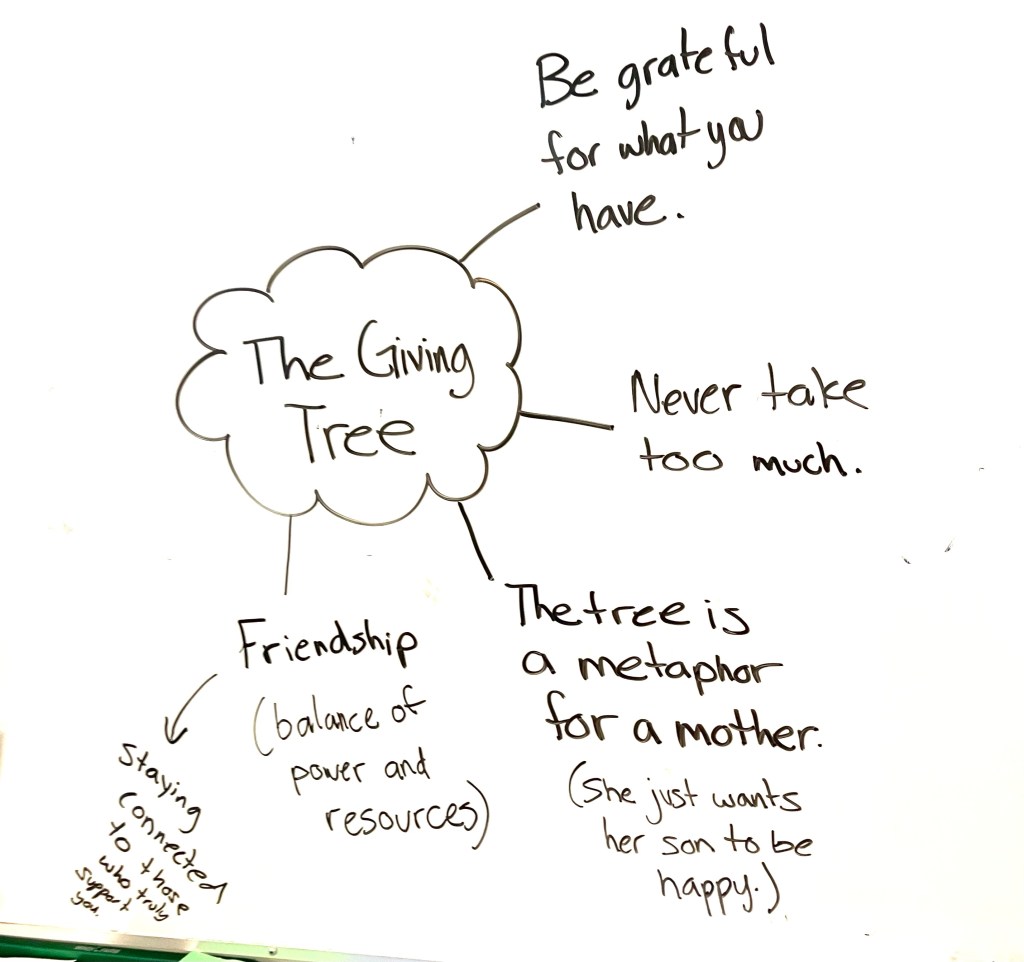 The Giving
Tree
Be grateful
for what you
have.
Never take
too much.
The tree is
a metaphor
for a mother.
(She just wants
her son to be
happy.)
Friendship
(balance of
power and
resources)
Staying
connected
to those
who truly
support
you.